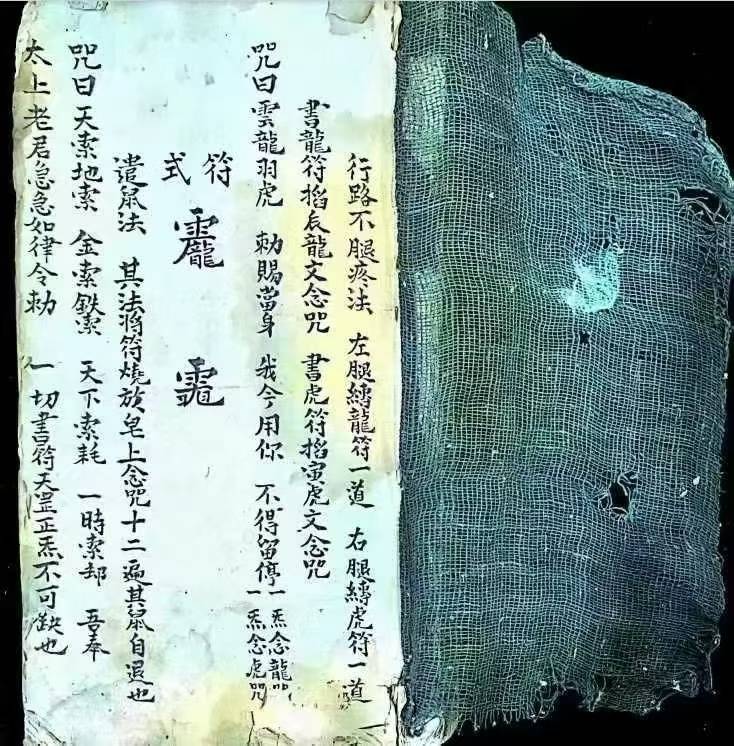 行路不腿疼法　左腿縛龍符一道　右腿縛虎符一道
書龍符掐辰龍文念咒　書虎符掐寅虎文念咒
咒曰雲龍羽虎　勅賜當身　我今用你　不得留停一炁念龍咒一炁念虎咒
符式
遣鼠法　其法將符燒放皂上念咒十二遍其鼠自退也
咒曰天索地索　金索鉄索　天下索耗　一時索却　吾奉
太上老君急急如律令勅　一切書符天罡正炁不可缺也